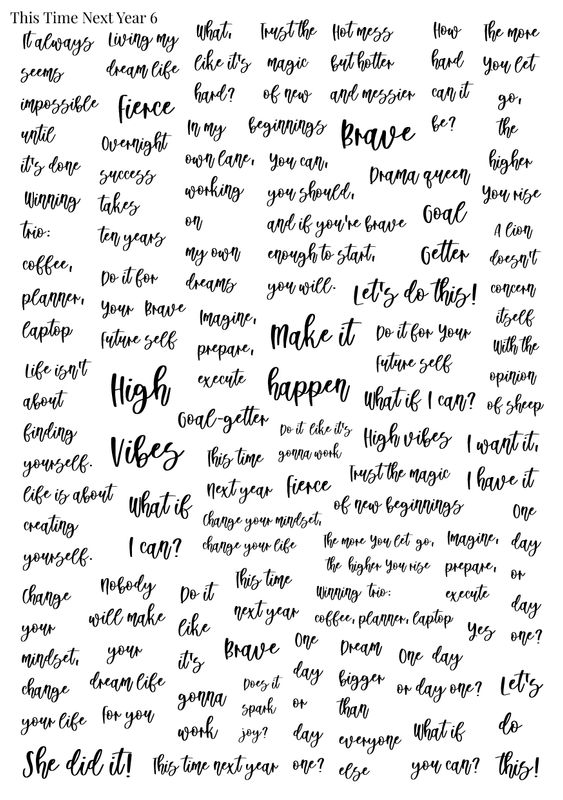 This Time Next Year 6
It always
seems
impossible
until
it's done
Winning
trio:
coffee,
planner,
laptop
Life isn't
about
finding
yourself.
life is about
creating
yourself.
Change
your
mindset,
change
your life
She did it!
Living my
dream life
fierce
Overnight
success
takes
ten years
Do it for
Your Brave
future self
High
Vibes
What if
I can?
Nobody
will make
your
dream life
for you
What,
like it's
hard?
In my
own lane,
working
on
my own
dreams
Imagine,
prepare,
execute
Goal-getter
This time
next year
Change your mindset,
change your life
Do it
like
it's
gonna
work
This time
next year
Brave
Does it
spark
joy?
This time next year
Trust the
magic
of new
beginnings
You can,
you should,
and if you're brave
enough to start,
you will.
Make it
happen
Do it like it's
gonna work
fierce
Hot mess
but hotter
and messier
Brave
Drama queen
Goal
Getter
Let's do this!
Do it for Your
future self
What if I can?
High vibes
Trust the magic
of new beginnings
The more You let go,
the higher You rise
Winning trio:
coffee, planner, laptop
One
day
or
day
one?
Dream
bigger
than
everyone
else
One day
or day one?
What if
you can?
How
hard
can it
be?
The more
You let
go,
the
higher
You rise
A lion
doesn't
concern
itself
With the
opinion
of sheep
I want it,
I have it
Imagine,
prepare,
execute
Yes
One
day
or
day
one?
Let's
do
this!